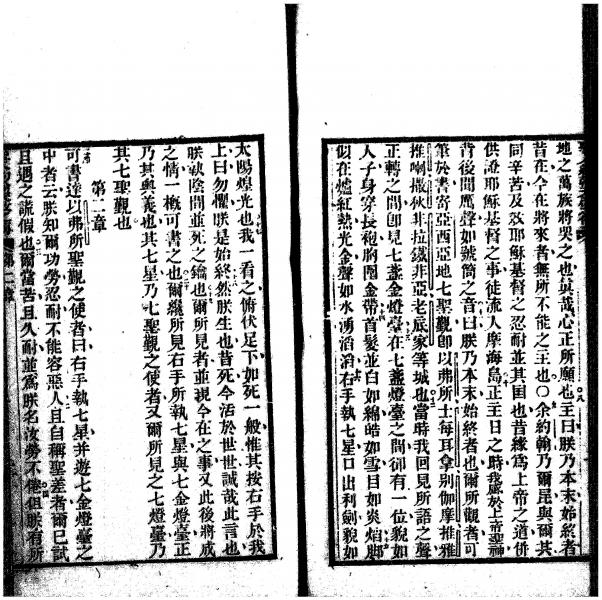 地之萬族將哭之也眞哉心正所願也主曰朕乃本末始終者
昔在今在將來者無所不能之主也○余約翰乃爾昆與爾其
同辛苦及效耶穌基督之忍耐並其囯也昔緣爲上帝之道併
供證耶穌基督之事徒流人摩海島正主日之時我感於上帝聖神
背後聞應聲如號筒之音曰朕乃本末始終者也爾所觀者可
筆於書寄亞西亞地七聖觀卽以弗所士每耳拿別伽摩推雅
推喇撒狄非拉鐵非亞老底家等城也當時我回見所語之聲
正轉之間卽見七盞金燈臺在七盞燈臺之間卻有一位貌如
人子身穿長袍胸圍金帶首髮並白如綿皓如雪目如炎焰腳
似在爐紅熱光金聲如水湧滔滔右手執七星口出利劍貌如
太陽煌光也我一看之俯伏足下如死一般惟其按右手於我
上曰勿懼朕是始終然朕生也昔死今活於世世誠哉此言也
朕執陰間並死之鑰也爾所見者並現今在之事又此後將成
之情一槪可書之也爾纔所見右手所執七星與七金燈臺正
乃其與義也其七星乃七聖觀之使者又爾所見之七燈臺乃
其七聖觀也
第二章
可書達以弗所聖觀之使者曰右手執七星并遊七金燈臺之
中者云朕知爾功勞忍耐不能容惡人且自稱聖差者爾已試
且遇之謊假也爾當苦且久耐並爲朕名汝勞不倦但朕有所